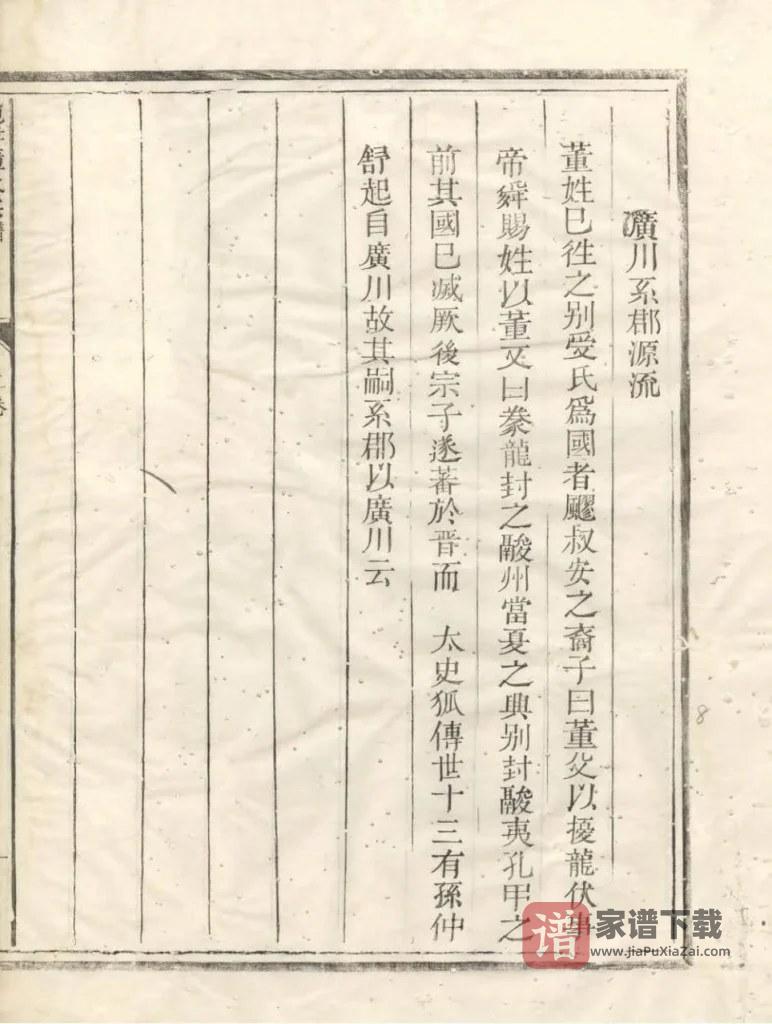 廣川系郡源流
董姓巳姓之别受氏為國者飂叔安之裔子曰董父以擾龍伏事
帝舜賜姓以董又曰豢龍封之鬷州當夏之興别封鬷夷孔甲之
前其國已滅厥後宗子遂蕃於晋而 太史狐傳世十三有孫仲
舒起自廣川故其嗣系郡以廣川云
8
谱 家谱下载
www.jiaPuXiaZai.com